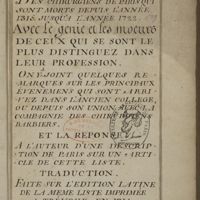 DES CHIRURGIENS DE PARIS QUI
SONT MORTS DEPUIS L'ANNÉE
1315. JUSQU'A L'ANNÉE 1722.
Avec le genie et les moeurs
DE CEUX QUI SE SONT LE
PLUS DISTINGUEZ DANS
LEUR PROFESSION.
ON Y JOINT QUELQUES RE
MARQUES SUR LES PRINCIPAUX
ÉVENEMENS QUI SONT ARRI
VEZ DANS L'ANCIEN COLLEGE,
OU DEPUIS SON UNION AVEC LA
COMPAGNIE DES CHIRURGIENS
BARBIERS.
ET LA REPONSE
A L'AUTEUR D'UNE DESCRIP
TION DE PARIS SUR UN ARTI
CLE DE CETTE LISTE.
TRADUCTION.
FAITE SUR L'EDITION LATINE
DE LA MEME LISTE IMPRIMÉE